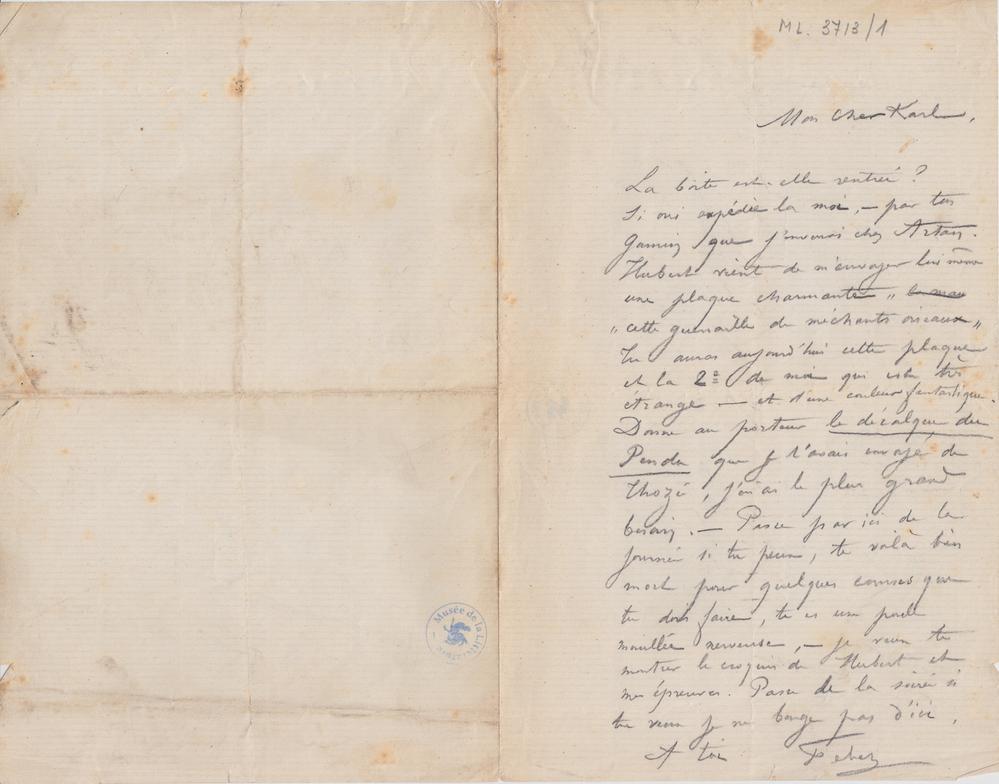 ML. 3713/1
Mon cher Karl,
La boîte est-elle rentrée ?
Si oui expédie la moi, – par ton
gamin que j'envoie chez Artan.
Hubert vient de m'envoyer lui même
une plaque charmante „
„ cette guenaille de méchants oiseaux „
Tu auras aujourd'hui cette plaque
et la 2e de moi qui est très
étrange — et d'une couleur fantastique.
Donne au porteur le décalque du
Pendu que je t'avais envoyé de
Thozée, j'en ai le plus grand
besoin. — Passe par ici de la
journée si tu peux, te voilà bien
mort pour quelques courses que
tu dois faire, tu es une poule
mouillée nerveuse, – je veux te
montrer le croquis de Hubert et
mes épreuves. Passe de la soirée si
tu veux je ne bouge pas d'ici.
A toi
Musée de la Littérature